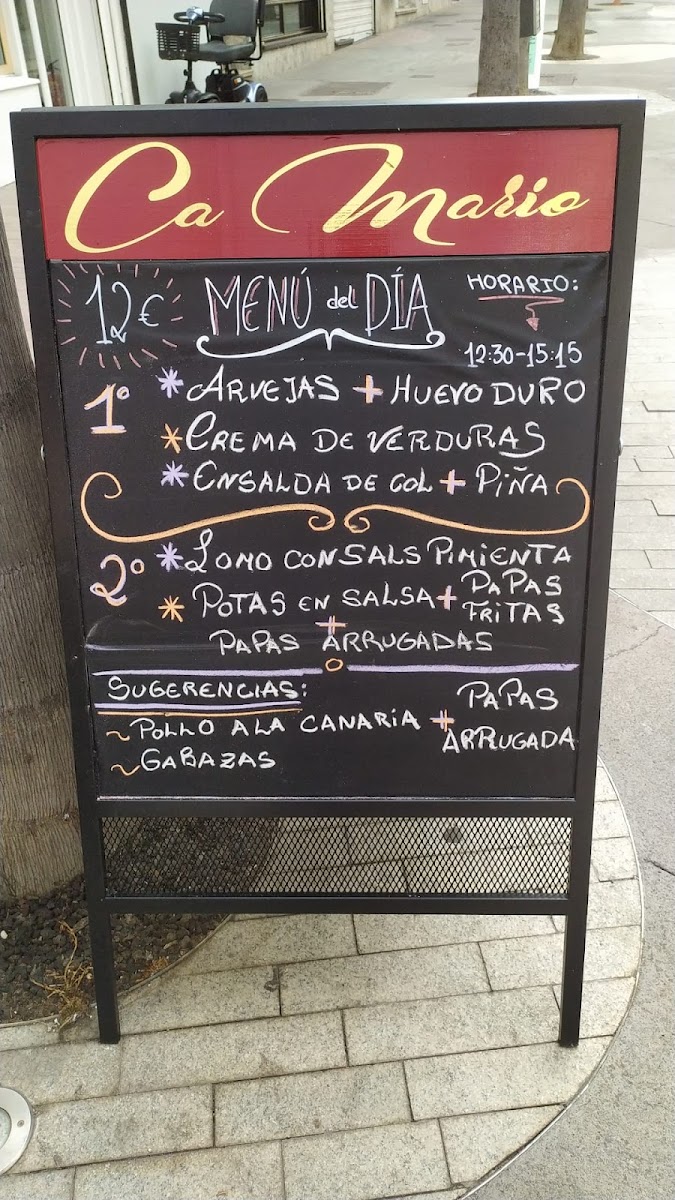 Ca Mario
12€ MENÚ del DÍA
HORARIO:
12:30-15:15
1º
* ARVEJAS + HUEVO DURO
* CREMA DE VERDURAS
* ENSALDA DE COL + PIÑA
2º
* LOMO CON SALS PIMIENTA
* POTAS EN SALSA + PAPAS FRITAS
+
PAPAS ARRUGADAS
SUGERENCIAS:
~ POLLO A LA CANARÍA + PAPAS ARRUGADA
~ GABAZAS